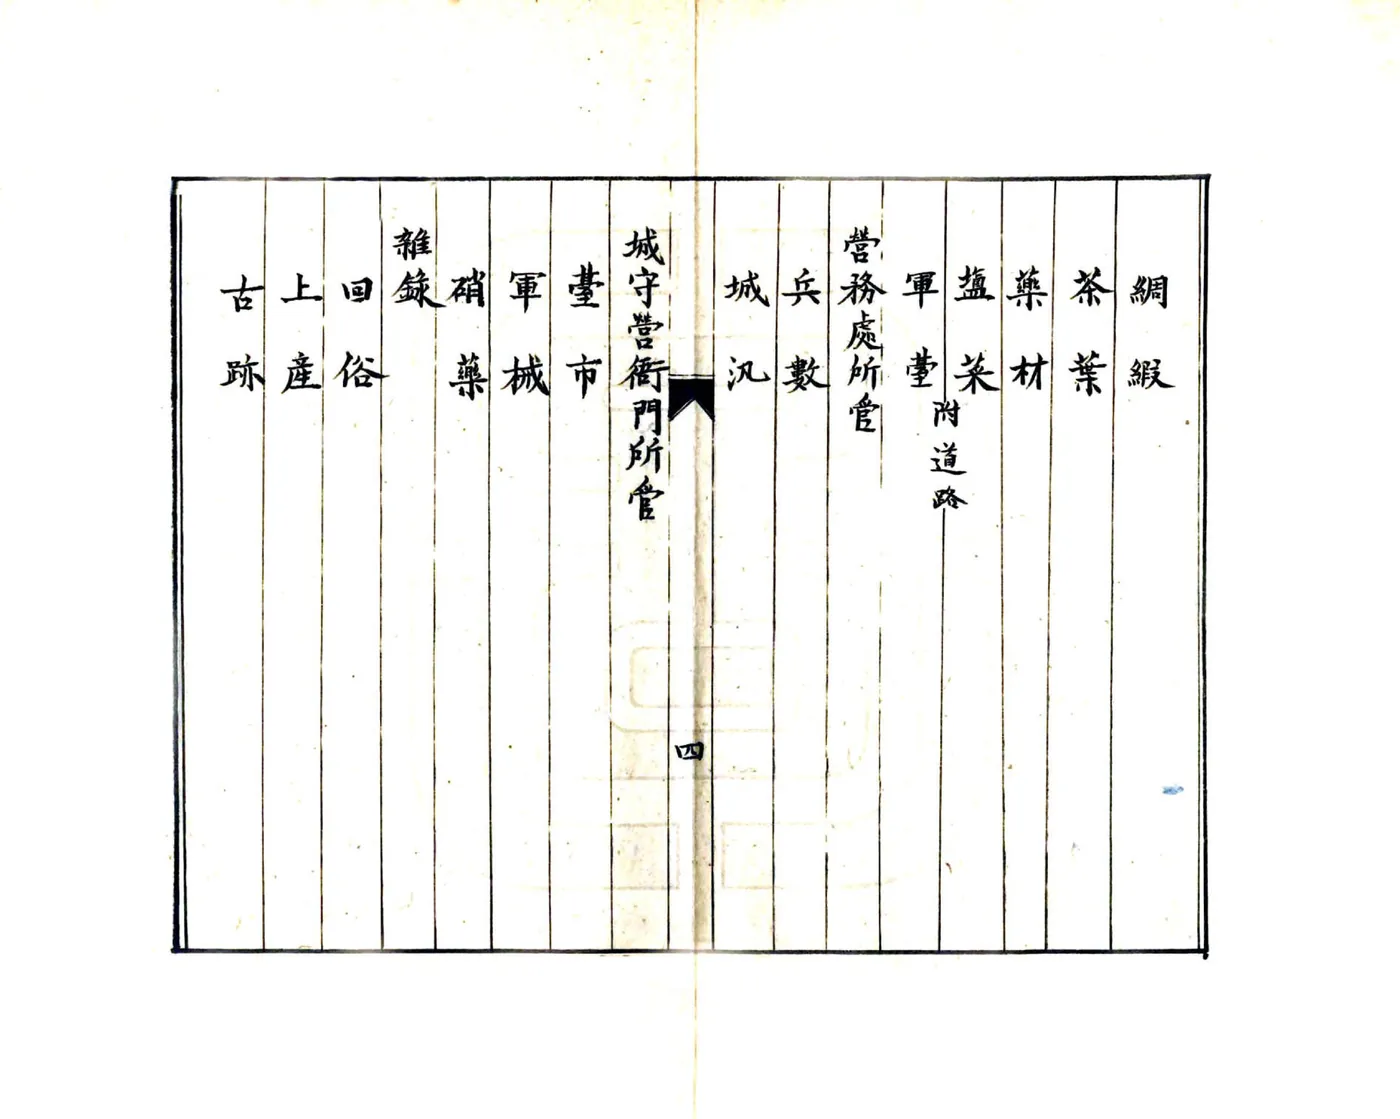 綢緞
茶葉
藥材
塩菜
軍臺附道路
營務處所管
兵數
城汛
四
城守營衙門所管
臺市
軍械
硝藥
雜錄
回俗
上產
古跡